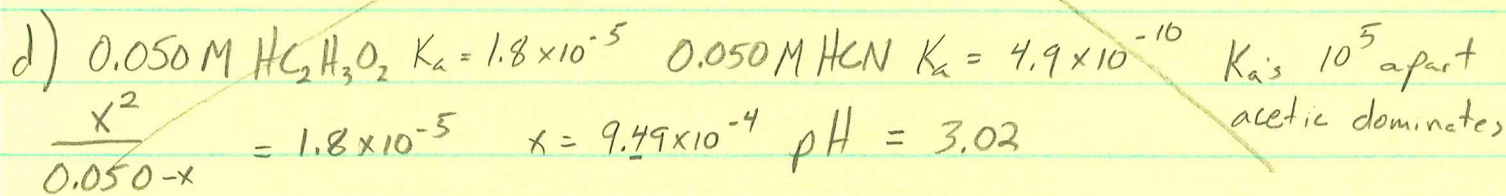 d) 0.050 M HC₂H₃O₂ Ka = 1.8 × 10⁻⁵ 0.050 M HCN Ka = 4.9 × 10⁻¹⁰ Ka's 10⁵ apart
acetic dominates
x² / 0.050 - x = 1.8 × 10⁻⁵ x = 9.49 × 10⁻⁴ pH = 3.02